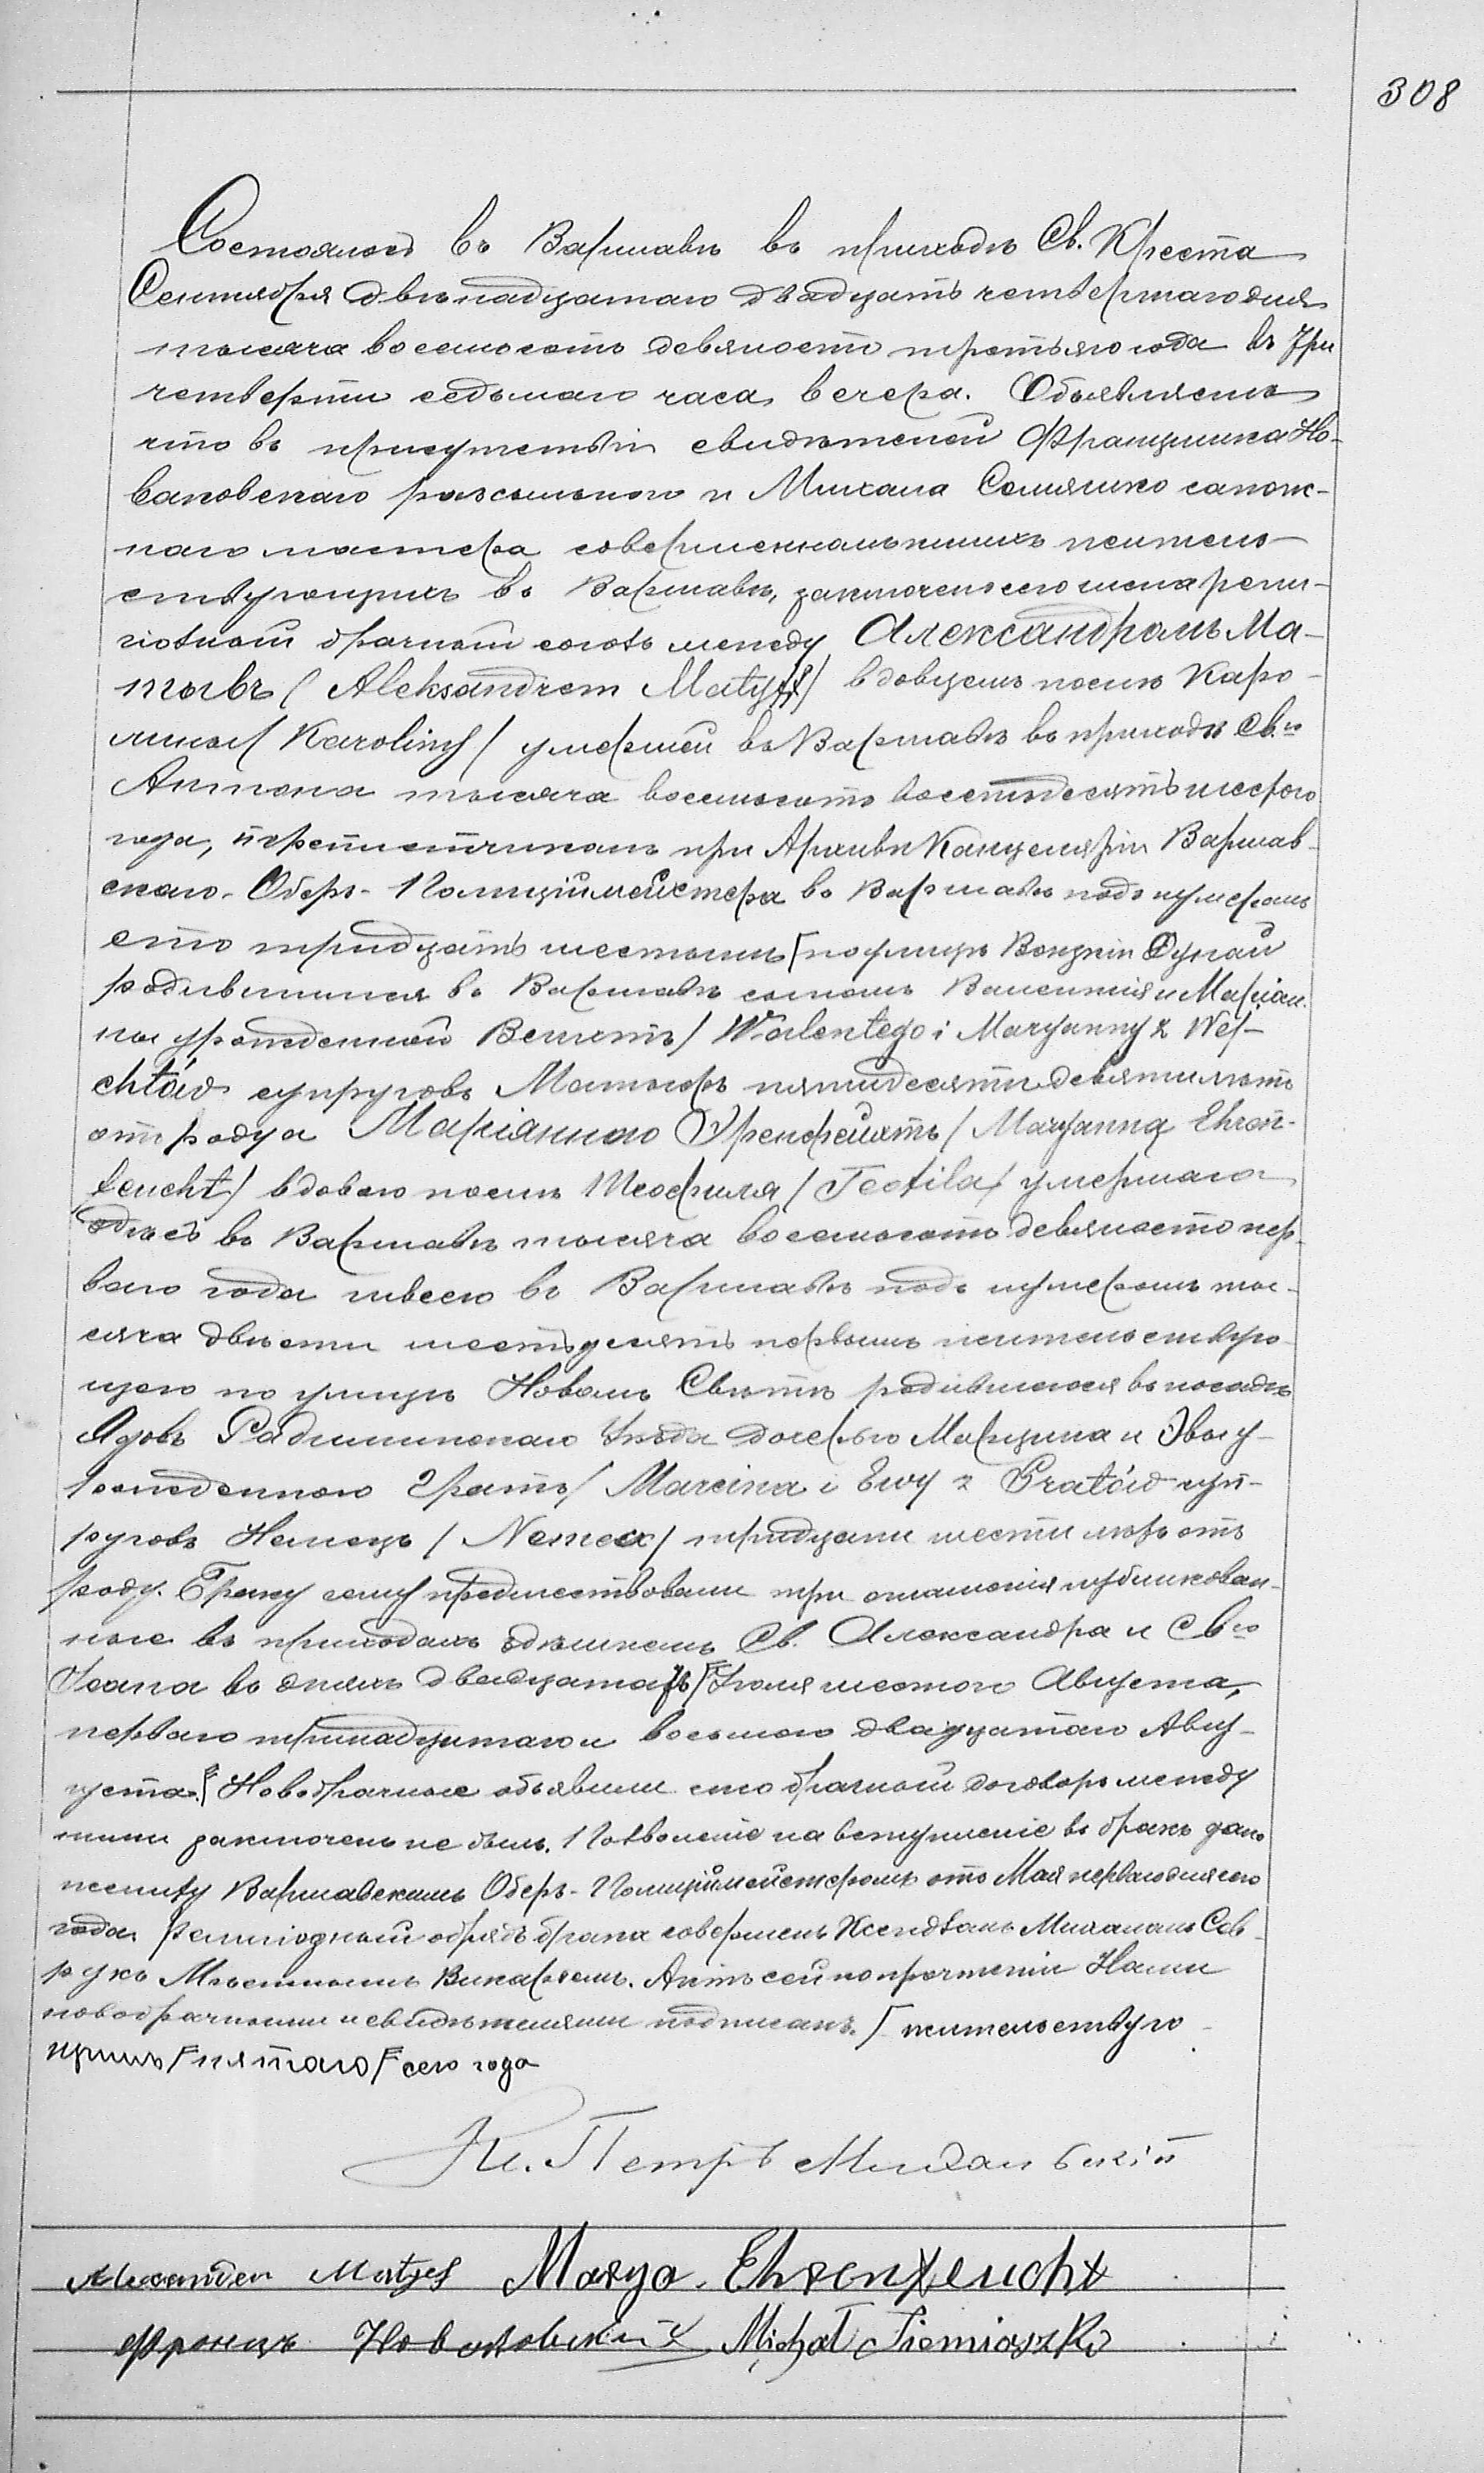 308
Состоялось въ Варшавѣ въ приходѣ Св. Креста
Сентября двѣнадцатаго двадцать четвертаго дня
тысяча восемьсотъ девяносто третьяго года въ три
четверти седьмаго часа вечера. Объявляемъ
что въ присутствіи свидѣтелей Францишка Но-
ваковскаго разсыльнаго и Михала Семяшко сапож-
наго мастера совершеннолѣтнихъ житель-
ствующихъ въ Варшавѣ, заключенъ сего числа рели-
гіозный брачный союзъ между Александромъ Ма-
тысъ / Aleksandrem Matys / вдовцемъ послѣ Каро-
лины / Karoliny / умершей въ Варшавѣ въ приходѣ Св.го
Антонія тысяча восемьсотъ восемьдесятъ втораго
года, при Архивѣ Канцеляріи Варшав-
скаго Оберъ-Полиціймейстера въ Варшавѣ подъ нумеромъ
сто тридцать шестымъ [ по улицѣ Дунай
родившимся въ Варшавѣ сыномъ Валентія и Маріан-
ны урожденной Вехтъ / Walentego i Maryanny z We-
chtów супруговъ Матысъ пятидесяти девяти лѣтъ
отъ роду и Маріанною Эренфейхтъ / Maryanną Ehren-
feucht / вдовою послѣ Теофиля / Teofila / умершаго
здѣсь въ Варшавѣ тысяча восемьсотъ девяносто пер-
ваго года швеею въ Варшавѣ подъ нумеромъ ты-
сяча двѣсти шестьдесятъ первымъ жительствую-
щею по улицѣ Новомъ Свѣтѣ родившеюся въ посадѣ
Ядовъ Радиминскаго уѣзда дочерью Марцина и Эвы у-
рожденной Гратъ / Marcina i Ewy z Gratów суп-
руговъ Немецъ / Nemec / тридцати шести лѣтъ отъ
роду. Браку сему предшествовали три оглашенія публикован-
ные въ приходахъ здѣшнемъ Св. Александра и Св.го
Іоанна въ дняхъ двадцать [ Іюля шестого Августа,
перваго тринадцатаго и восьмого двадцатаго Авгу-
уста.[ Новобрачные объявили что брачный договоръ между
ними заключенъ не былъ. Позволеніе на вступленіе въ бракъ дано
жениху Варшавскимъ Оберъ-Полиціймейстеромъ отъ Мая перваго дня сего
года. Религіозный обрядъ брака совершенъ Ксендзомъ Михаломъ
Мѣстнымъ Викаріемъ. Актъ сей по прочтеніи Нами
новобрачными и свидѣтелями подписанъ. [ жительствую-
щимъ [ пятаго [ сего года
Кс. Петръ
Alexander Matys Marya Ehrenfeucht
Францъ Новаковскій Michał Siemiaszko